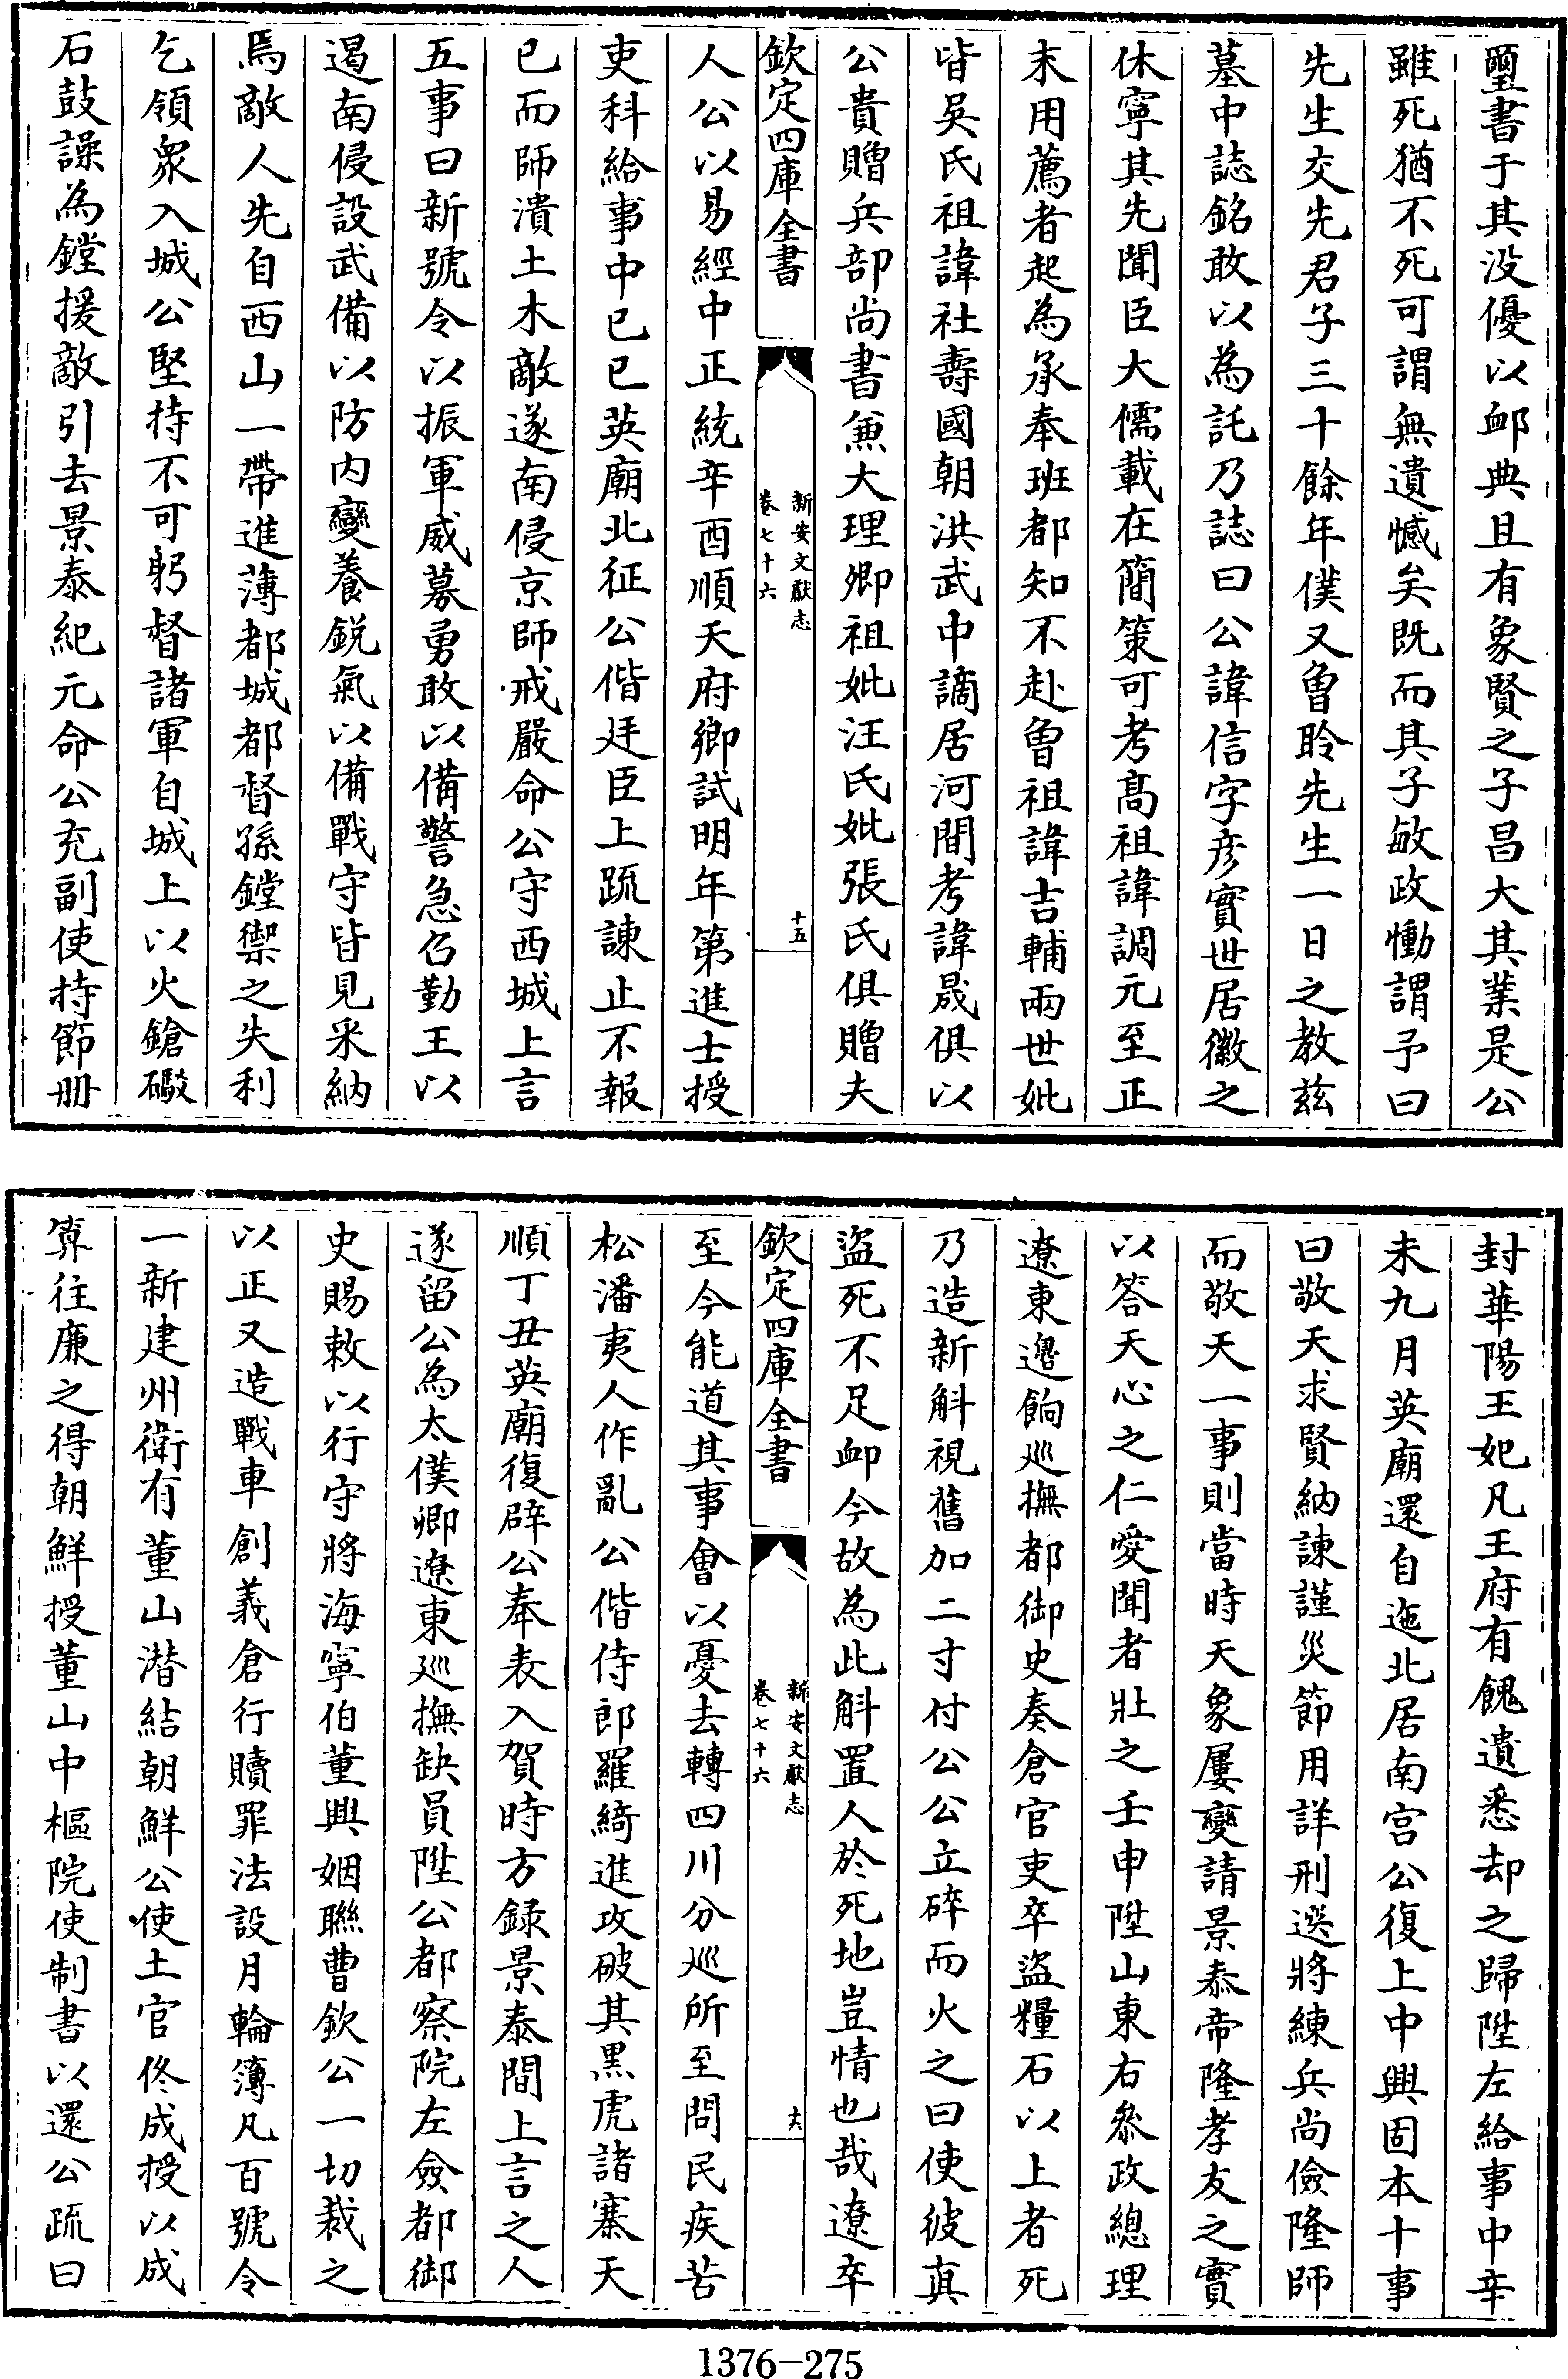 璽書于其没優以卹典且有象賢之子昌大其業是公
雖死猶不死可謂無遺憾矣既而其子敏政慟謂予曰
先生交先君子三十餘年僕又曾聆先生一日之教兹
墓中誌銘敢以為託乃誌曰公諱信字彦實世居徽之
休寧其先聞臣大儒載在簡策可考髙祖諱調元至正
末用薦者起為承奉班都知不赴曾祖諱吉輔兩世妣
皆吳氏祖諱社壽國朝洪武中謫居河間考諱晟俱以
公貴贈兵部尚書兼大理卿祖妣汪氏妣張氏俱贈夫
欽定四庫全書
新安文獻志
卷七十六
十五
人公以易經中正統辛酉順天府鄉試明年第進士授
吏科給事中已已英廟北征公偕廷臣上疏諫止不報
已而師潰土木敵遂南侵京師戒嚴命公守西城上言
五事曰新號令以振軍威募勇敢以備警急召勤王以
遏南侵設武備以防内變養鋭氣以備戰守皆見采納
焉敵人先自西山一帶進薄都城都督孫鏜禦之失利
乞領衆入城公堅持不可躬督諸軍自城上以火鎗礮
石鼓譟為鏜援敵引去景泰紀元命公充副使持節冊
封華陽王妃凡王府有餽遺悉却之歸陞左給事中辛
未九月英廟還自迤北居南宫公復上中興固本十事
曰敬天求賢納諫謹災節用詳刑選將練兵尚儉隆師
而敬天一事則當時天象屢變請景泰帝隆孝友之實
以答天心之仁愛聞者壯之壬申陞山東右叅政總理
遼東邊餉巡撫都御史奏倉官吏卒盜糧石以上者死
乃造新斛視舊加二寸付公公立碎而火之曰使彼真
盜死不足卹今故為此斛置人於死地豈情也哉遼卒
欽定四庫全書
新安文獻志
卷七十六
十六
至今能道其事會以憂去轉四川分巡所至問民疾苦
松潘夷人作亂公偕侍郎羅綺進攻破其黑虎諸寨天
順丁丑英廟復辟公奉表入賀時方録景泰間上言之人
遂留公為太僕卿遼東巡撫缺員陞公都察院左僉都御
史賜敕以行守將海寧伯董興姻聯曹欽公一切裁之
以正又造戰車創義倉行贖罪法設月輪簿凡百號令
一新建州衛有董山潛結朝鮮公使土官佟成授以成
算往廉之得朝鮮授董山中樞院使制書以還公疏曰
1376-275